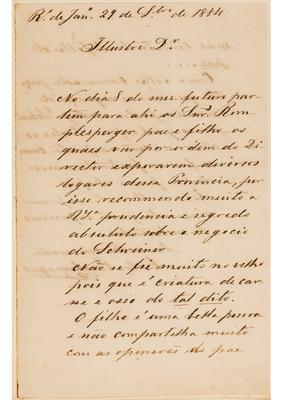 Rº de Janº 29 de S.bro de 1884
Illustre Dr.
No dia 8 do mez futuro par-
tem para ahi os Snrs. Rom-
plesperger pae e filho os
quaes vão por ordem do Di-
rector explorarem diversos
logares dessa Provincia, por
isso recommendo muito a
V.ª prudencia e segredo
absoluto sobre o negocio
do Schreiner.
Não se fie muito no velho
pois que é criatura de car-
ne e osso do tal dito.
O filho é uma bella pessoa
e não compartilha muito
com as opiniões do pae